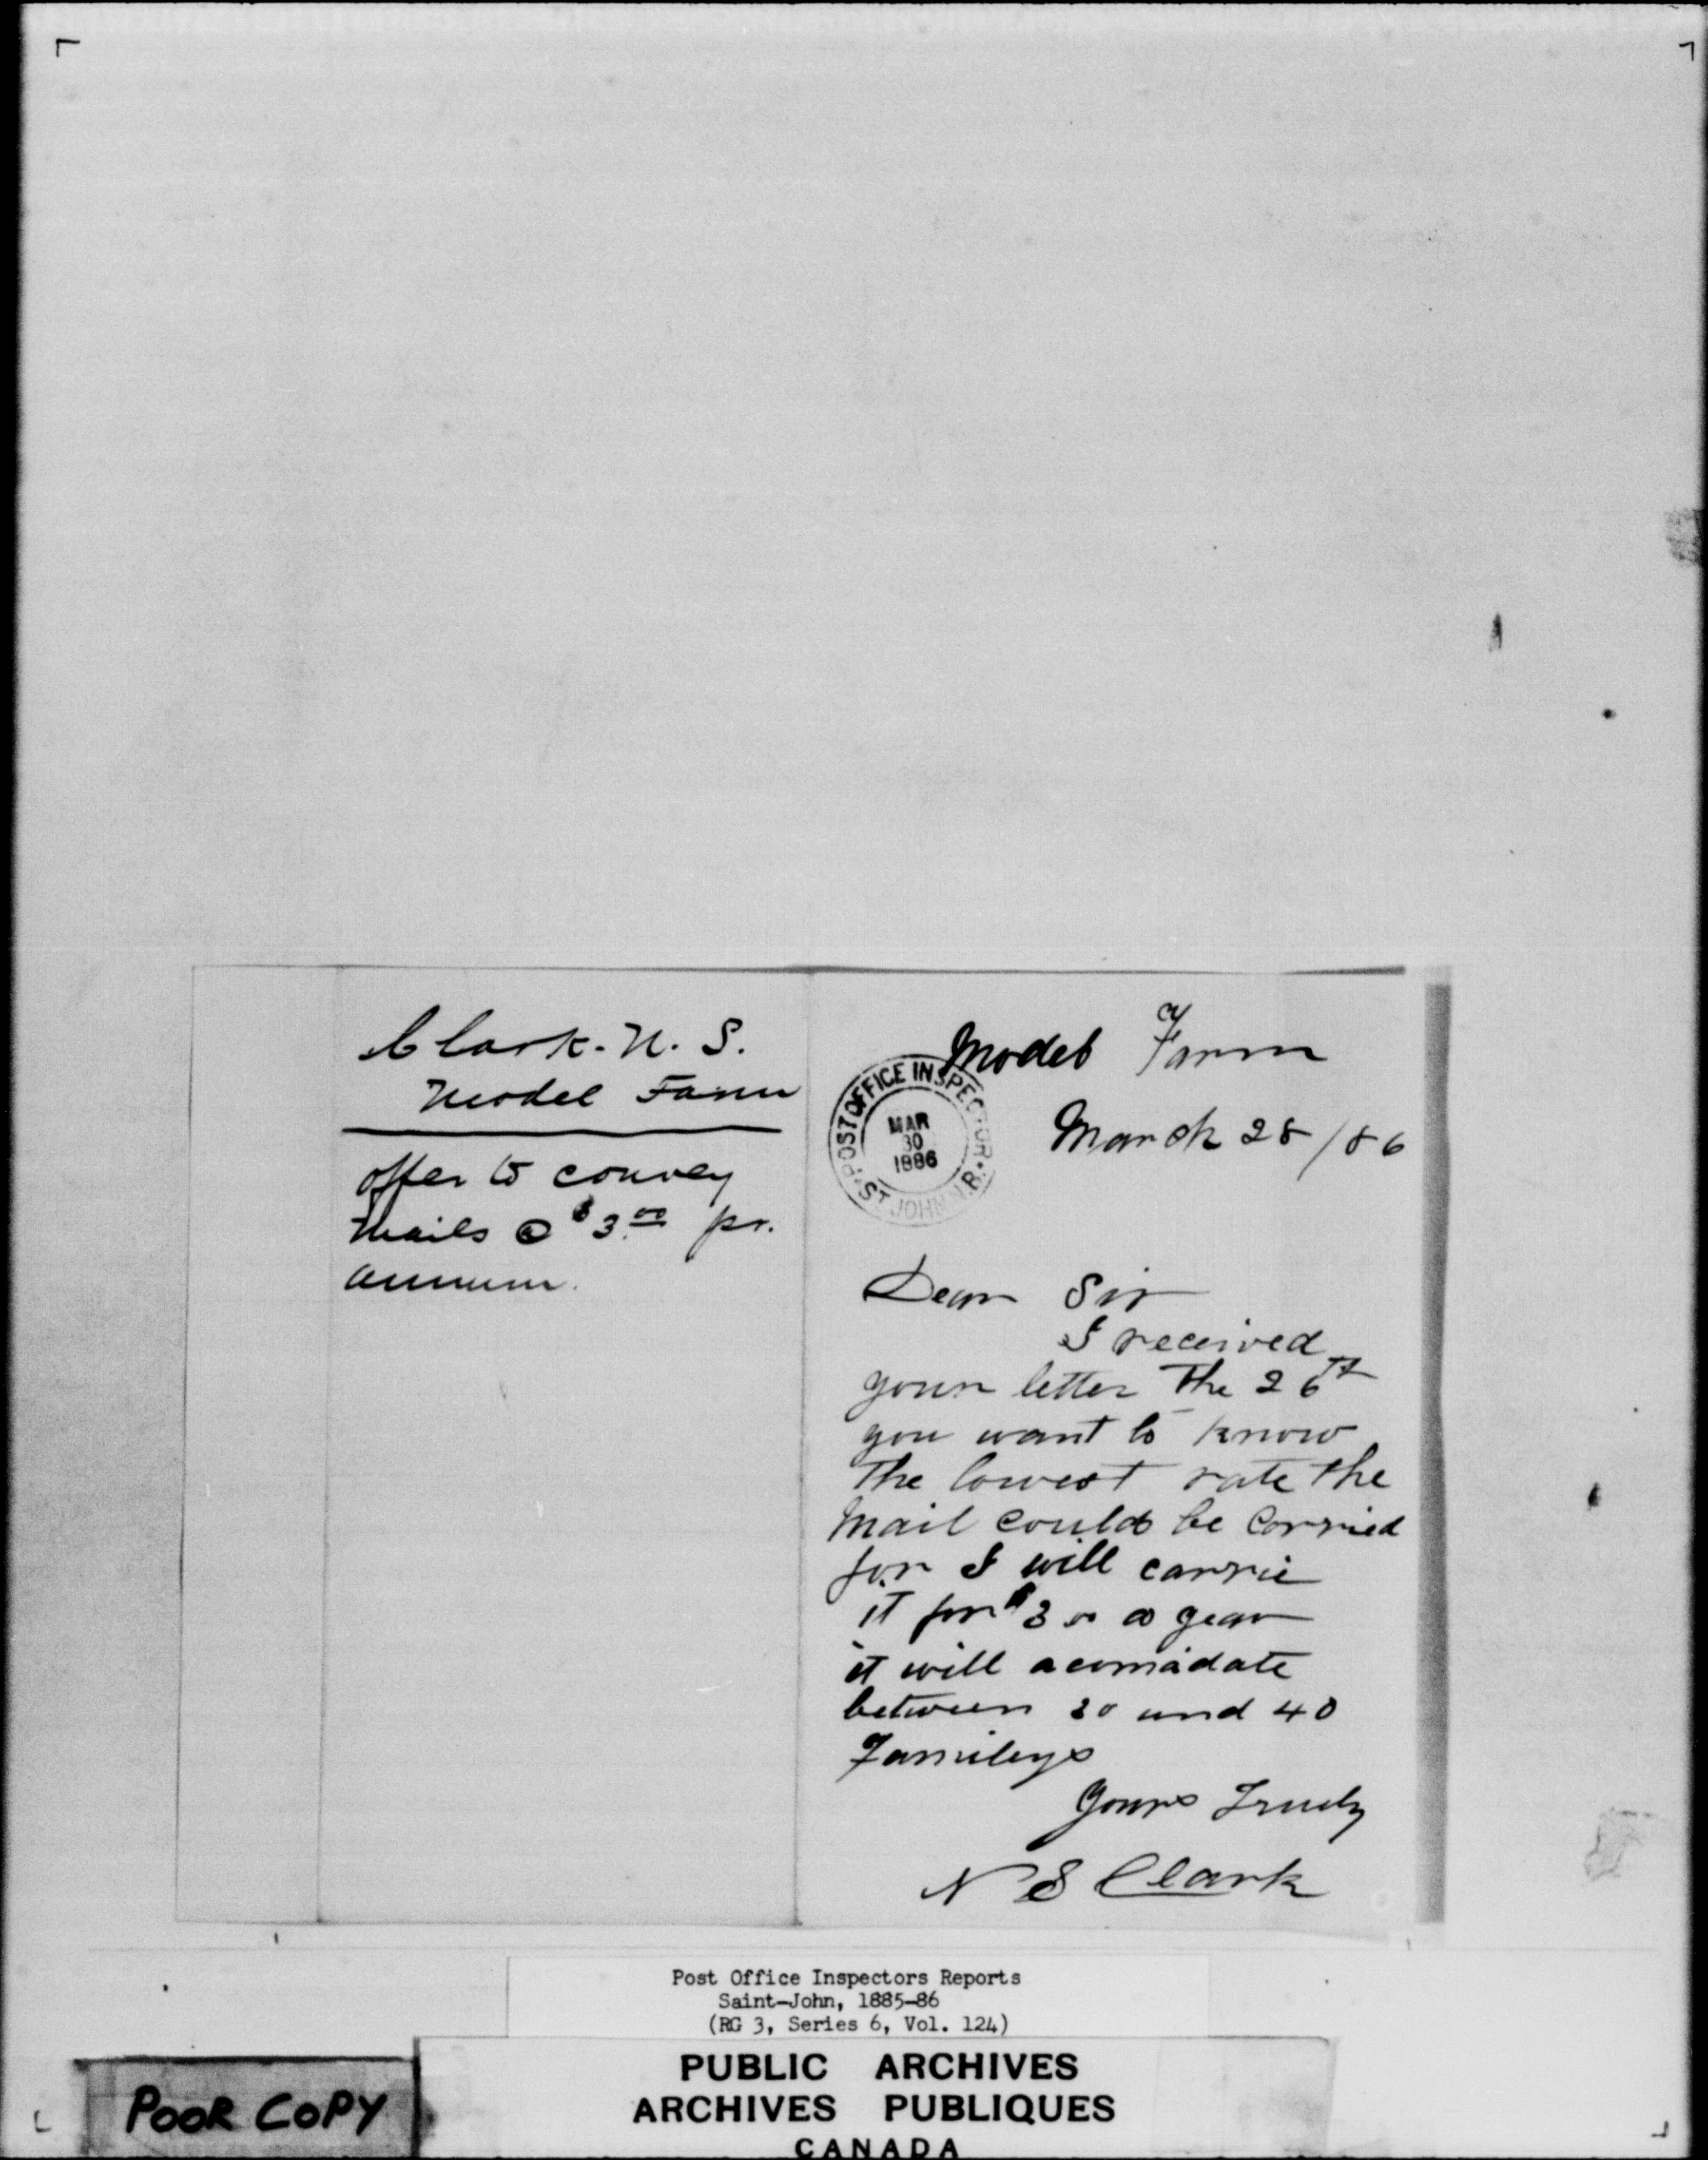 Clark. N. S.
Model Farm
offer to convey
Mails @ $3.00 pr.
annum.
Model Farm
POST OFFICE INSPECTOR
MAR
30
1886
ST JOHN N.B.
March 28/86
Dear Sir
I received
your letter the 26th
you want to know
the lowest rate the
Mail could be Carried
for I will carrie
it for $3 00 a year
it will acomadate
between 30 and 40
Famileys
Yours Truly
N S Clark
Post Office Inspectors Reports
Saint-John, 1885-86
(RG 3, Series 6, Vol. 124)
PUBLIC ARCHIVES
ARCHIVES PUBLIQUES
CANADA
POOR COPY